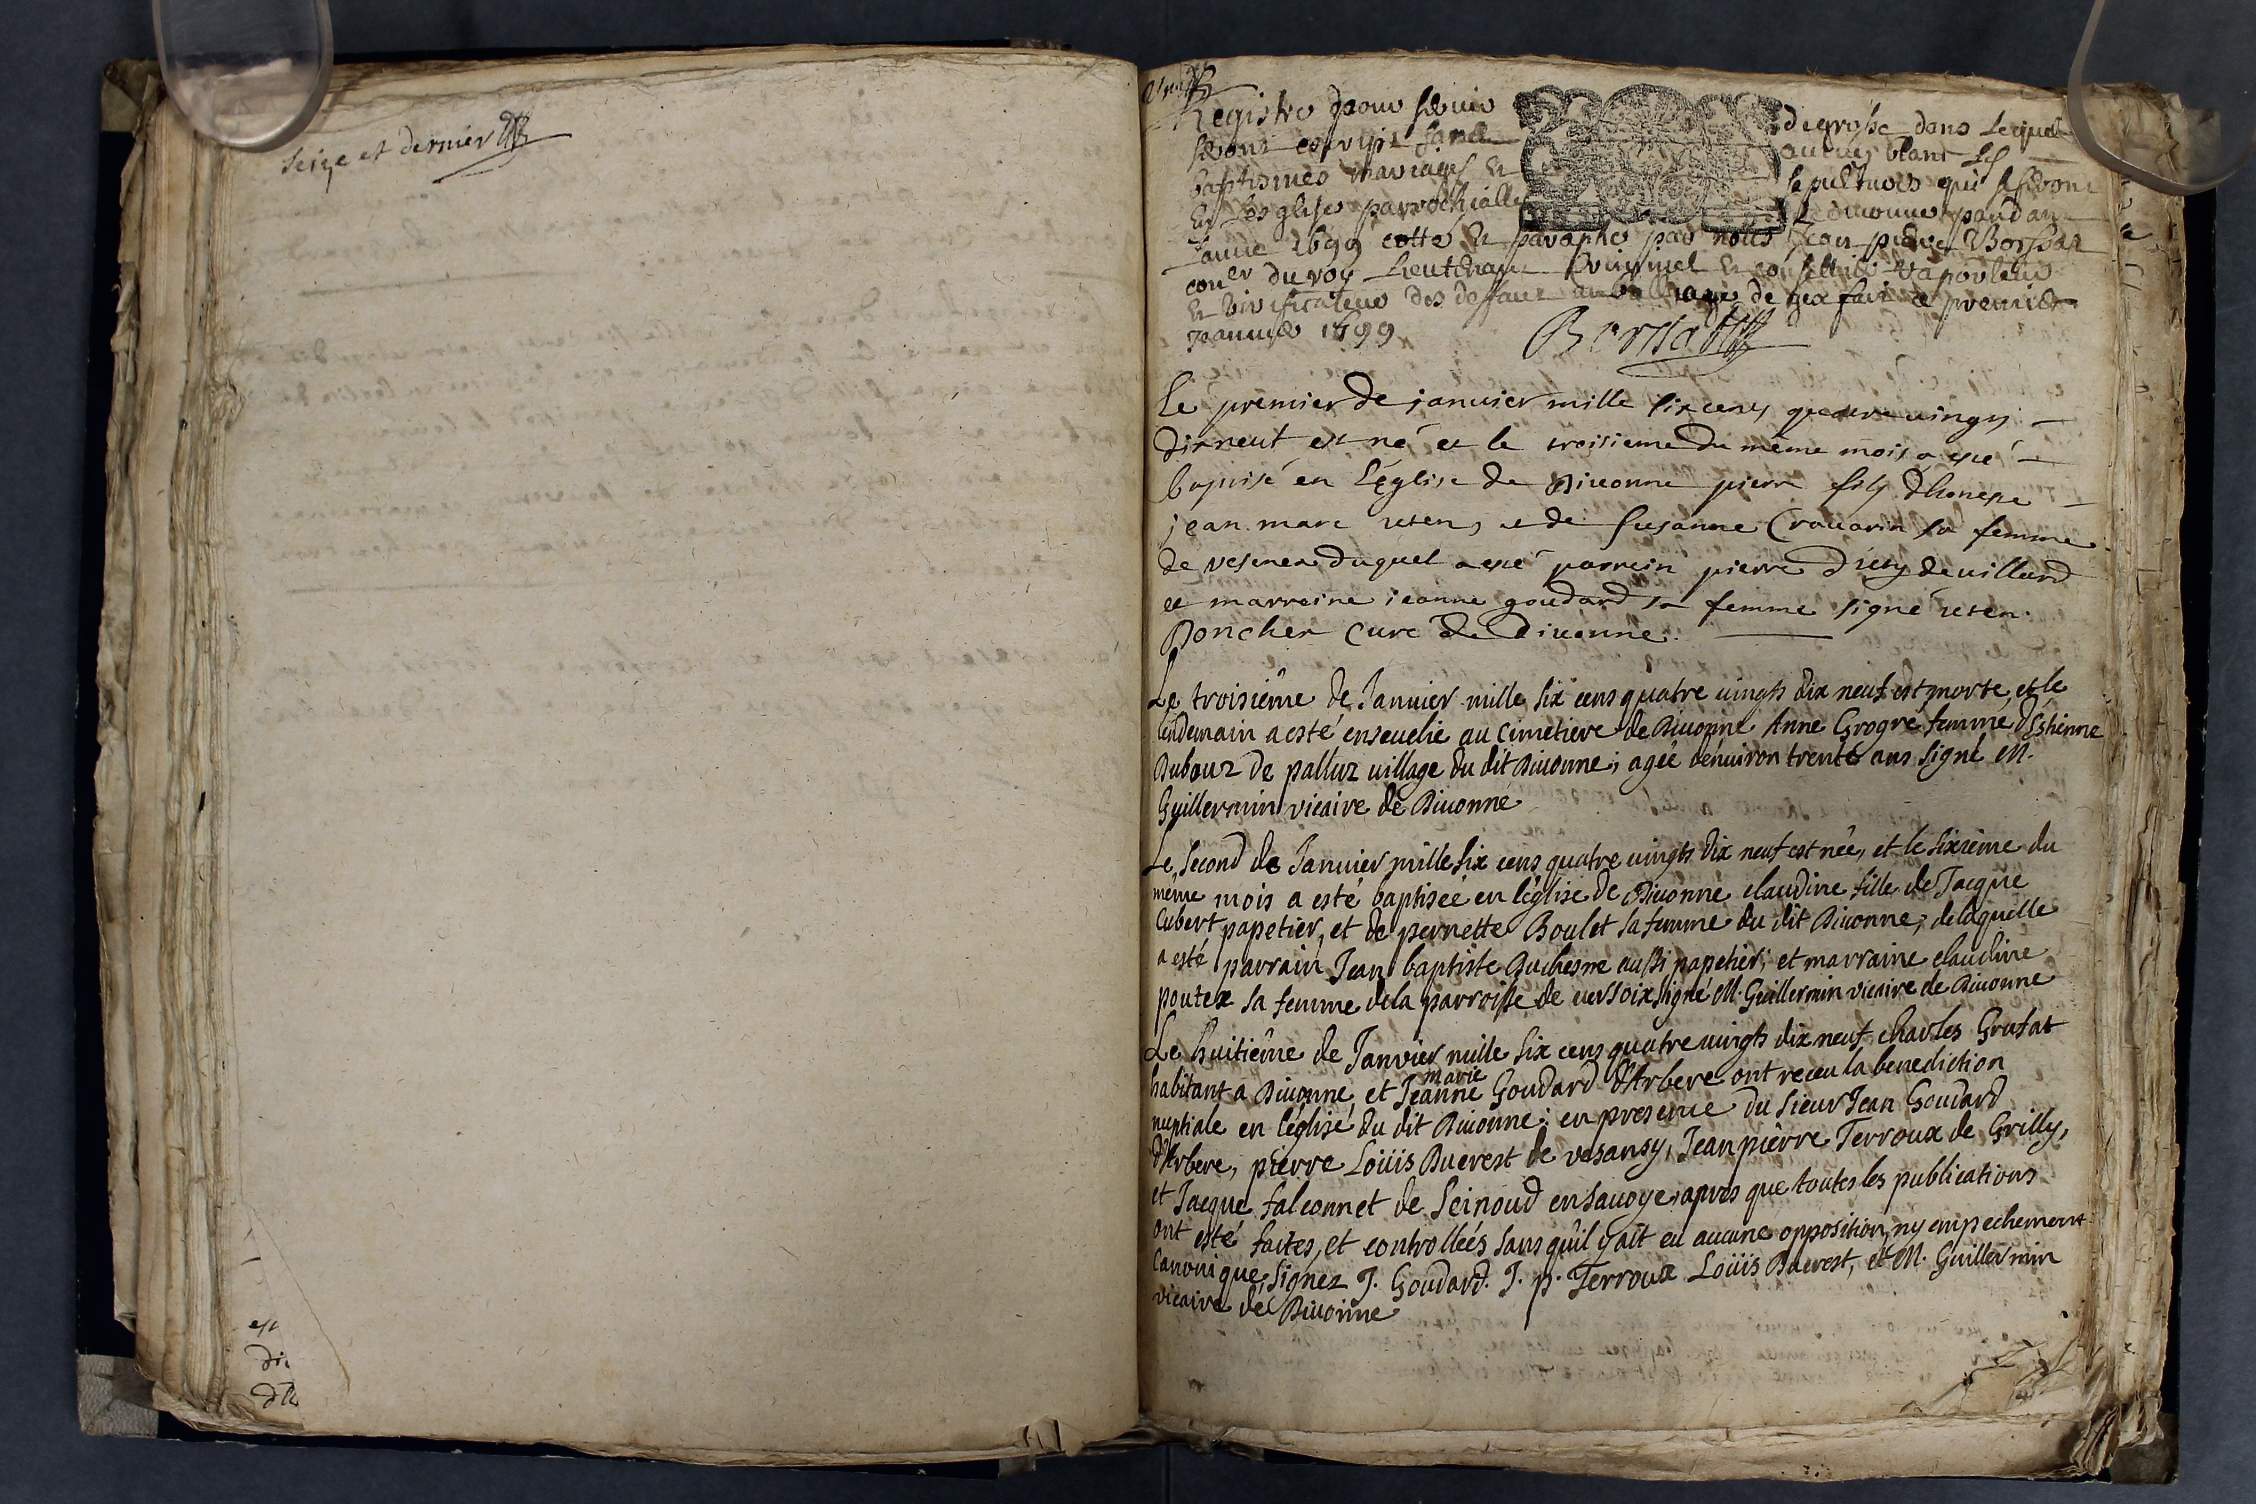 Seize et dernier
est
di
Registre pour servir
degrosse dans lequel
seront escript sans
aucuns blanc les
baptismes mariages et
sepultures qui se feront
en lesglise parrochialle
de divonne pandant
lannée 1699 cotté et paraphé par nous Jean pierre Borssat
con.er du roy Lieutenant Criminel et conseiller raporteur
et verificateur des deffaux au bailliage de gex fait ce premier
Janvier 1699
Borssat
Le premier de janvier mille six cens quatre uingts
dixneuf est né et le troisieme du même mois a esté
baptisé en L'église de Diuonne pierre fils d'honeste
jean marc usen, et de Susanne Crouarin sa femme
de vesenex duquel a esté parrein pierre de uillard
et marreine jeanne goudard sa femme signé usen.
Poncher Curé de Diuonne.
Le troisiême de Januier mille six cens quatre uingts dix neuf est morte, et le
lendemain a esté enseuelie au cimetiere de Diuonne Anne Grogre femme d'Estienne
Dubouz de palluz uillage du dit Diuonne, agée d'enuiron trente ans signé M.
Guillermin vicaire de Diuonne
Le second de Januier mille six cens quatre uingts dix neuf est née, et le sixième du
même mois a esté baptisée en l'église de Diuonne claudine fille de Jacque
Cubert papetier, et de pernette Boulet sa femme du dit Diuonne, de laquelle
a esté parrain Jean baptiste Duchesne aussi papetier, et marraine claudine
poutex sa femme de la parroisse de uersoix signé M. Guillermin vicaire de Diuonne
Le huitiême de Janvier mille six cens quatre uingts dix neuf charles Grufat
marie
habitant a Diuonne, et Jeanne Goudard d'Arbere ont receu la benediction
nuptiale en l'église du dit Diuonne: en presence du sieur Jean Goudard
d'Arbere, pierre Loüis Duerest de vesansy, Jean pierre Terroux de Grilly,
et Jacque falconnet de Seinoud en sauoye, apres que toutes les publications
ont esté faites, et controllées sans qu'il y ait eu aucune opposition, ny empechement
canonique, signez J. Goudard. J. p. Terroux Loüis Duerest, et M. Guillermin
vicaire de Diuonne